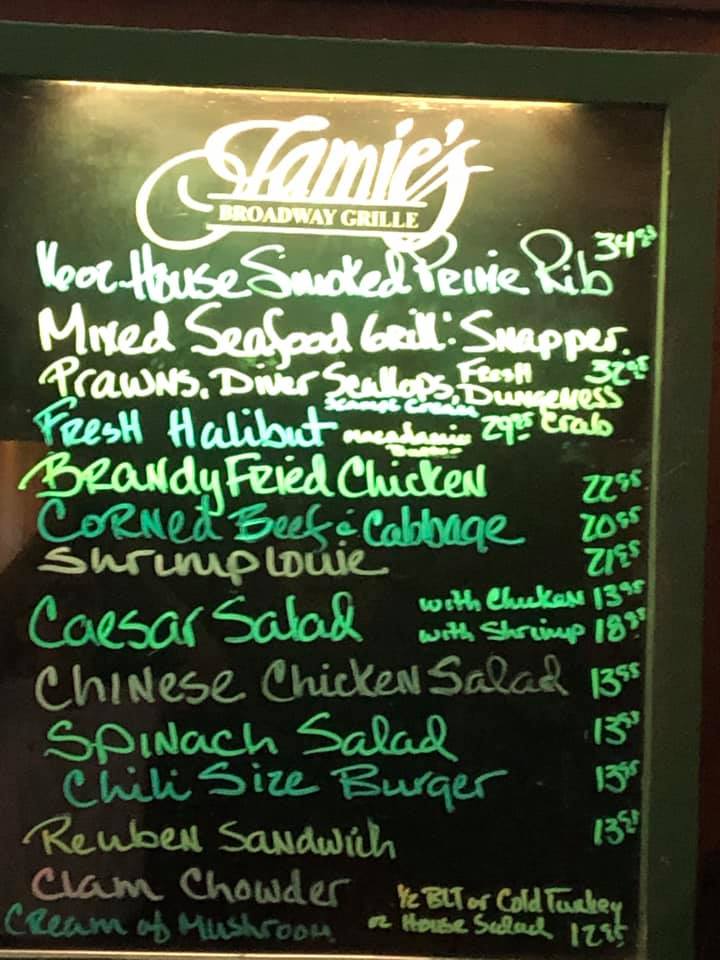 Jamie's
BROADWAY GRILLE
16oz. House Smoked Prime Rib 34.95
Mixed Seafood Grill: Snapper.
Prawns. Diver Scallops, Fresh Dungeness Crab 32.95
Fresh Halibut macadamia 29.95
Brandy Fried Chicken 22.95
Corned Beef & Cabbage 20.95
Shrimp Louie 21.95
Caesar Salad with Chicken 13.95
with Shrimp 18.95
Chinese Chicken Salad 13.95
Spinach Salad 13.95
Chili Size Burger 13.95
Reuben Sandwich 13.95
Clam Chowder
Cream of Mushroom
1/2 BLT or Cold Turkey
or House Salad 12.95